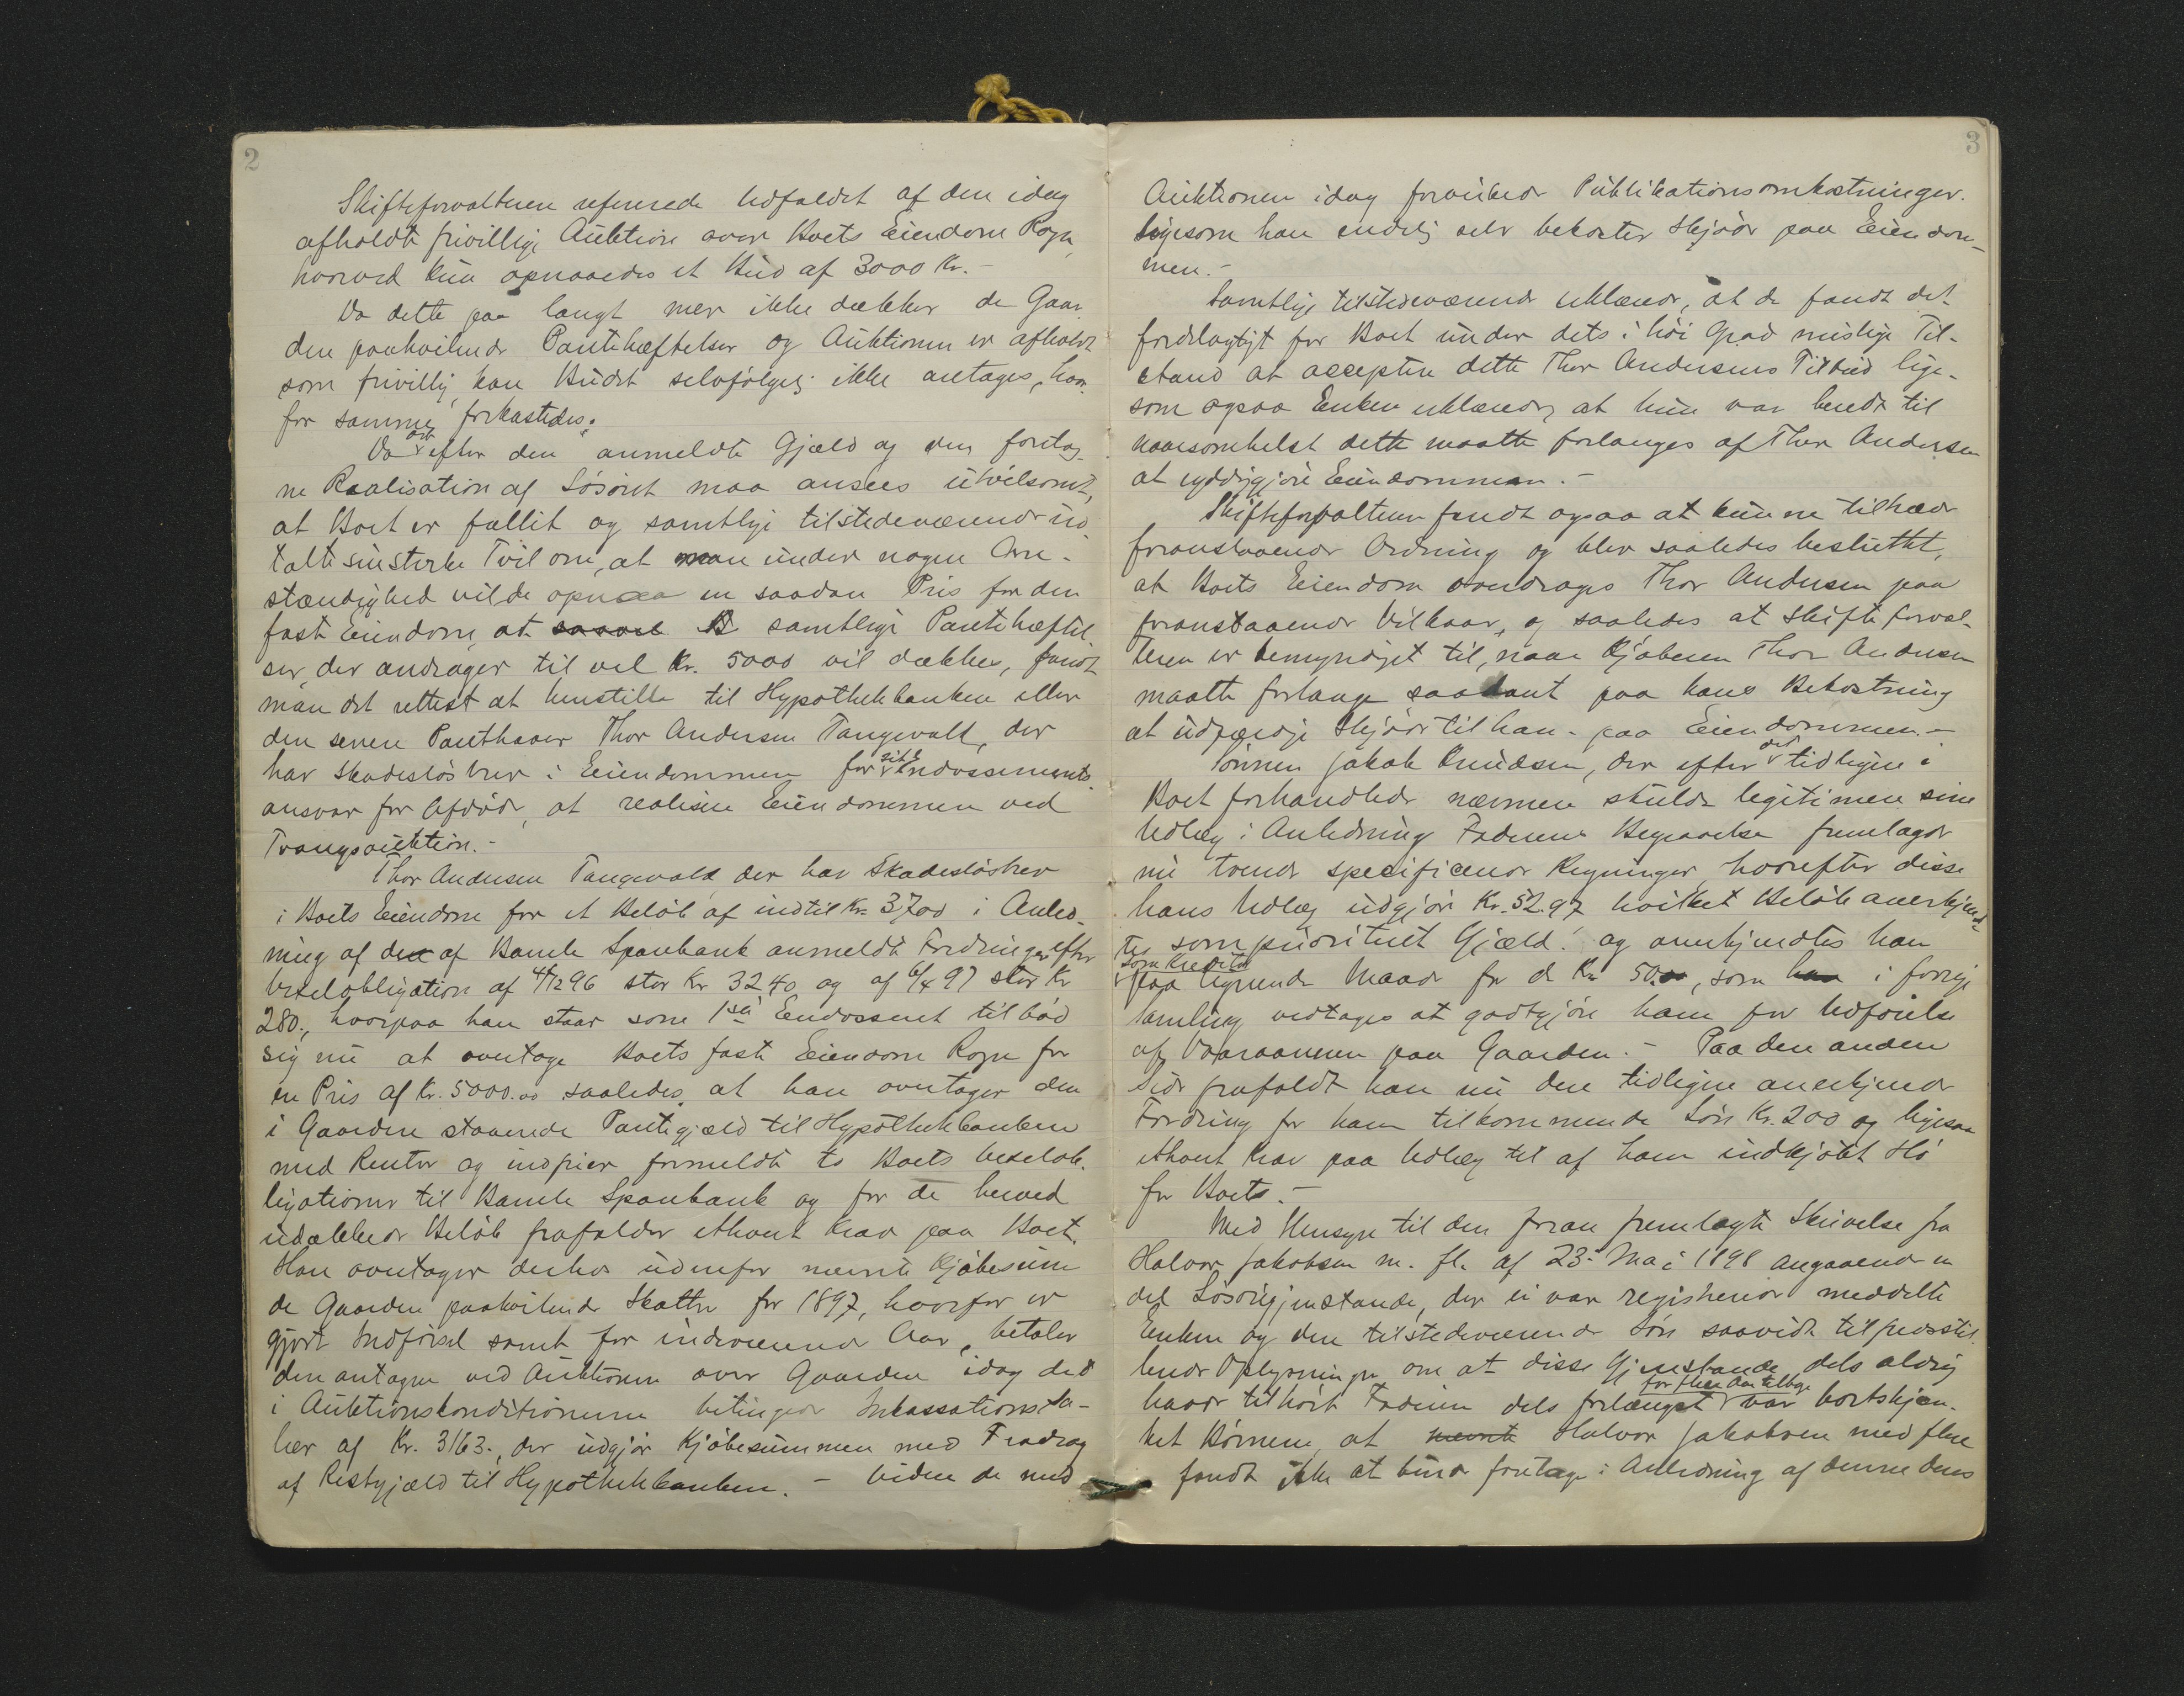 2
Skifteforvalteren refererede Udfaldet af den idag
afholdte frivillige Auktion over Boets Eiendom Rogn,
hvorved kun opnaaedes et Bud af 3000 Kr.-
Da dette paa langt nær ikke dækker de Gaar-
den paahvilende Pantehæftelser og Auktionen er afholdt
som frivillig, kan Budet selvfølgelig ikke antages, hvor-
for samme forkastedes.
Da det efter den anmeldte Gjæld og den foretag-
ne Realisation af Løsøret maa ansees utvilsomt,
at Boet er fallit og samtlige tilstedeværende ud-
talte sin sterke Tvil om, at man under nogen Om-
stændighed vilde opnaa en saadan Pris for den
faste Eiendom, at saavel B samtlige Pantehæftel-
ser, der andrager til vel Kr. 5000 vil dækkes, fandt
man det rettest at henstille til Hypothekbanken eller
den senere Panthaver Thor Andersen Tangevald, der
har Skadesløsbrev i Eiendommen for sit Endossements-
ansvar for Afdøde, at realisere Eiendommen ved
Tvangsauktion.-
Thor Andersen Tangevald, der har Skadesløsbrev
i Boets Eiendom for et Beløb af indtil Kr. 3700 i Anled-
ning af den af Bamle Sparebank anmeldte Fordringer efter
Vexelobligation af 4/12 96 stor Kr 3240 og af 6/4 97 stor Kr
280., hvorpaa han staar som 1ste Endossent tilbød
sig nu at overtage Boets faste Eiendom Rogn for
en Pris af Kr. 5000.00 saaledes, at han overtager den
i Gaarden staaende Pantegjæld til Hypothekbanken
med Renter og indfrier formeldte to Boets Vexelob-
ligationer til Bamle Sparebank og for de herved
udækkede Beløb frafalder ethvert Krav paa Boet.
Han overtager derhos udenfor nævnte Kjøbesum
de Gaarden paahvilende Skatter for 1897, hvorfor er
gjort Indførsel samt for indeværende Aar, betaler
den antagne ved Auktionen over Gaarden idag det
i Auktionskonditionerne betingede Inkassationssa-
lær af Kr. 3163., der udgjør Kjøbesummen med Fradrag
af Restgjæld til Hypothekbanken. - Videre de med
3
Auktionen idag forbundne Publikationsomkostninger.
Ligesom han endelig selv bekoster Skjøde paa Eiendom-
men.-
Samtlige tilstedeværende erklærede, at de fandt det
fordelagtigt for Boet under dets i høi Grad mislige Til-
stand at acceptere dette Thor Andersens Tilbud lige-
som ogsaa Enken erklærede, at hun var beredt til
naarsomhelst dette maatte forlanges af Thor Andersen
at ryddiggjøre Eiendommen.-
Skifteforvalteren fandt ogsaa at kunne tilraade
foranstaaende Ordning og blev saaledes besluttet,
at Boets Eiendom overdrages Thor Andersen paa
foranstaaende Vilkaar, og saaledes at Skifteforval-
teren er bemyndiget til, naar Kjøberen Thor Andersen
maatte forlange saadant paa hans Bekostning
at udfærdige Skjøde til ham paa Eiendommen.-
Sønnen Jakob Knudsen, der efter det tidligere i
Boet forhandlede nærmere skulde legitimere sine
Udlæg i Anledning Faderens Begravelse fremlagde
nu tvende specificerede Regninger hvorefter disse
hans Udlæg udgjør Kr. 52.97 hvilket Beløb anerkjend-
tes som prioriteret Gjæld. og anerkjendtes han
som Kreditor
paa lignende Maade for de Kr. 50.00, som han i forrige
Samling vedtages at godtgjøre ham for Udførelse
af Vaaraannen paa Gaarden. - Paa den anden
Side frafaldt han nu den tidligere anerkjendte
Fordring for ham tilkommende Løn Kr. 200 og ligesaa
ethvert Krav paa Udlæg til af ham indkjøbt Hø
for Boet.-
Med Hensyn til den foran fremlagte Skrivelse fra
Halvor Jakobsen m. fl. af 23de Mai 1898 angaaende en
del Løsøregjenstande, der ei var registreret meddelte
Enken og den tilstedeværende Søn saavidt tilfredsstil-
lende Oplysninger om at disse Gjenstande dels aldrig
havde tilhørt Faderen dels forlængst for flere Aar tilbage var bortskjæn-
ket Børnene, at nævnte Halvor Jakobsen med flere
fandt ikke at burde foretage i Anledning af denne deres